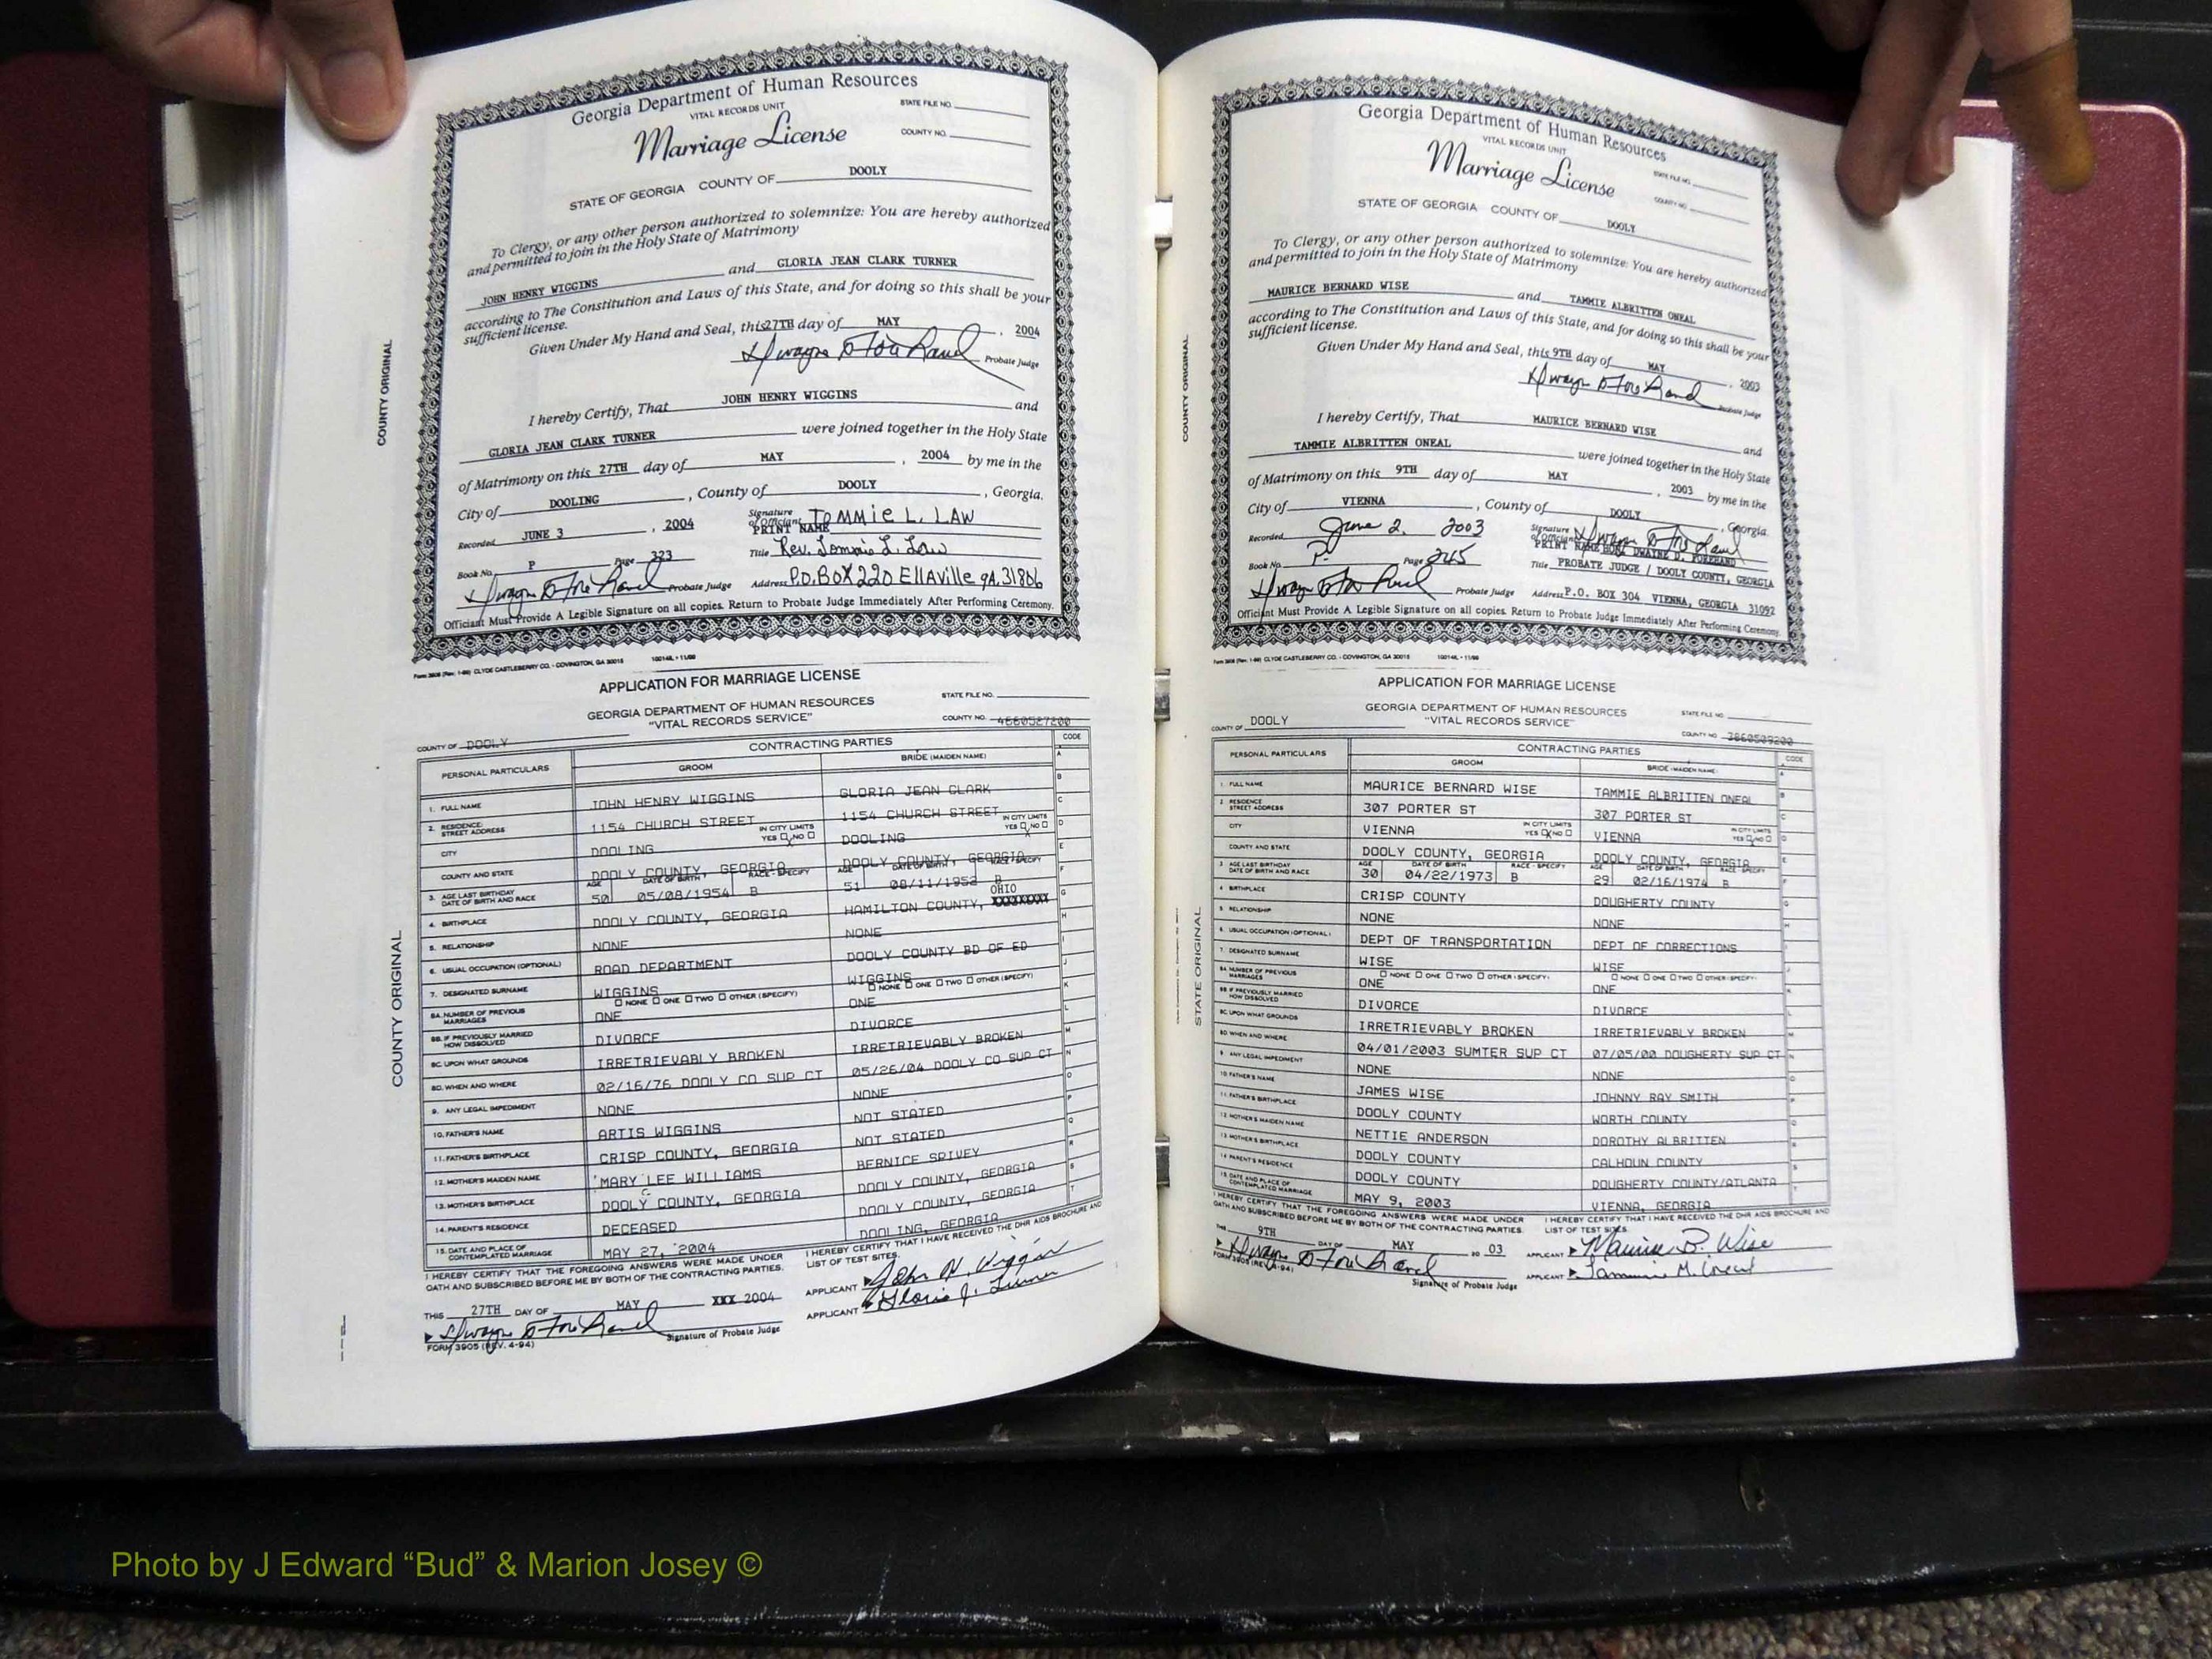 Georgia Department of Human Resources
VITAL RECORDS UNIT
STATE FILE NO.
Marriage License
COUNTY NO.
STATE OF GEORGIA COUNTY OF DOOLY
To Clergy, or any other person authorized to solemnize: You are hereby authorized
and permitted to join in the Holy State of Matrimony
JOHN HENRY WIGGINS and GLORIA JEAN CLARK TURNER
according to The Constitution and Laws of this State, and for doing so this shall be your
sufficient license.
Given Under My Hand and Seal, this 27TH day of MAY , 2004
Probate Judge
I hereby Certify, That JOHN HENRY WIGGINS and
GLORIA JEAN CLARK TURNER were joined together in the Holy State
of Matrimony on this 27TH day of MAY , 2004 by me in the
City of DOOLING , County of DOOLY , Georgia.
Recorded JUNE 3 , 2004 Signature of Officiant TOMMIE L. LAW
PRINT NAME
Book No. P Page 323 Title Rev. Tommie L. Law
Probate Judge Address P.O. BOX 220 EllAville gA. 31806
Officiant Must Provide A Legible Signature on all copies. Return to Probate Judge Immediately After Performing Ceremony.
Form 3908 (Rev. 1-99) CLYDE CASTLEBERRY CO. - COVINGTON, GA 30015 10014L - 11/99
COUNTY ORIGINAL
APPLICATION FOR MARRIAGE LICENSE
GEORGIA DEPARTMENT OF HUMAN RESOURCES
"VITAL RECORDS SERVICE"
STATE FILE NO.
COUNTY NO. 4660527200
COUNTY OF DOOLY
CONTRACTING PARTIES
CODE
PERSONAL PARTICULARS GROOM BRIDE (MAIDEN NAME)
1. FULL NAME JOHN HENRY WIGGINS GLORIA JEAN CLARK
2. RESIDENCE: STREET ADDRESS 1154 CHURCH STREET 1154 CHURCH STREET
CITY DOOLING IN CITY LIMITS YES NO DOOLING IN CITY LIMITS YES NO
COUNTY AND STATE DOOLY COUNTY, GEORGIA DOOLY COUNTY, GEORGIA
3. AGE LAST BIRTHDAY DATE OF BIRTH AND RACE AGE 50 DATE OF BIRTH 05/08/1954 RACE - SPECIFY B AGE 51 DATE OF BIRTH 08/11/1952 RACE - SPECIFY B
4. BIRTHPLACE DOOLY COUNTY, GEORGIA HAMILTON COUNTY, OHIO
5. RELATIONSHIP NONE NONE
6. USUAL OCCUPATION (OPTIONAL) ROAD DEPARTMENT DOOLY COUNTY BD OF ED
7. DESIGNATED SURNAME WIGGINS WIGGINS
8A. NUMBER OF PREVIOUS MARRIAGES NONE ONE TWO OTHER (SPECIFY) ONE NONE ONE TWO OTHER (SPECIFY) ONE
8B. IF PREVIOUSLY MARRIED HOW DISSOLVED DIVORCE DIVORCE
8C. UPON WHAT GROUNDS IRRETRIEVABLY BROKEN IRRETRIEVABLY BROKEN
8D. WHEN AND WHERE 02/16/76 DOOLY CO SUP CT 05/26/04 DOOLY CO SUP CT
9. ANY LEGAL IMPEDIMENT NONE NONE
10. FATHER'S NAME ARTIS WIGGINS NOT STATED
11. FATHER'S BIRTHPLACE CRISP COUNTY, GEORGIA NOT STATED
12. MOTHER'S MAIDEN NAME MARY LEE WILLIAMS BERNICE SPIVEY
13. MOTHER'S BIRTHPLACE DOOLY COUNTY, GEORGIA DOOLY COUNTY, GEORGIA
14. PARENT'S RESIDENCE DECEASED DOOLY COUNTY, GEORGIA
15. DATE AND PLACE OF CONTEMPLATED MARRIAGE MAY 27, 2004 DOOLING, GEORGIA
I HEREBY CERTIFY THAT THE FOREGOING ANSWERS WERE MADE UNDER
OATH AND SUBSCRIBED BEFORE ME BY BOTH OF THE CONTRACTING PARTIES.
I HEREBY CERTIFY THAT I HAVE RECEIVED THE DHR AIDS BROCHURE AND
LIST OF TEST SITES.
THIS 27TH DAY OF MAY XXX 2004
APPLICANT John H. Wiggins
APPLICANT Gloria J. Turner
Signature of Probate Judge
FORM 3905 (REV. 4-94)
COUNTY ORIGINAL
Georgia Department of Human Resources
VITAL RECORDS UNIT
STATE FILE NO.
Marriage License
COUNTY NO.
STATE OF GEORGIA COUNTY OF DOOLY
To Clergy, or any other person authorized to solemnize: You are hereby authorized
and permitted to join in the Holy State of Matrimony
MAURICE BERNARD WISE and TAMMIE ALBRITTEN ONEAL
according to The Constitution and Laws of this State, and for doing so this shall be your
sufficient license.
Given Under My Hand and Seal, this 9TH day of MAY , 2003
Probate Judge
I hereby Certify, That MAURICE BERNARD WISE and
TAMMIE ALBRITTEN ONEAL were joined together in the Holy State
of Matrimony on this 9TH day of MAY , 2003 by me in the
City of VIENNA , County of DOOLY , Georgia.
Recorded June 2, 2003 Signature of Officiant
PRINT NAME HON. DWAINE D. FOREHAND
Book No. P Page 245 Title PROBATE JUDGE / DOOLY COUNTY, GEORGIA
Probate Judge Address P.O. BOX 304 VIENNA, GEORGIA 31092
Officiant Must Provide A Legible Signature on all copies. Return to Probate Judge Immediately After Performing Ceremony.
Form 3908 (Rev. 1-99) CLYDE CASTLEBERRY CO. - COVINGTON, GA 30015 10014L - 11/99
COUNTY ORIGINAL
APPLICATION FOR MARRIAGE LICENSE
GEORGIA DEPARTMENT OF HUMAN RESOURCES
"VITAL RECORDS SERVICE"
STATE FILE NO.
COUNTY NO. 3860509200
COUNTY OF DOOLY
CONTRACTING PARTIES
CODE
PERSONAL PARTICULARS GROOM BRIDE (MAIDEN NAME)
1. FULL NAME MAURICE BERNARD WISE TAMMIE ALBRITTEN ONEAL
2. RESIDENCE STREET ADDRESS 307 PORTER ST 307 PORTER ST
CITY VIENNA IN CITY LIMITS YES NO VIENNA IN CITY LIMITS YES NO
COUNTY AND STATE DOOLY COUNTY, GEORGIA DOOLY COUNTY, GEORGIA
3. AGE LAST BIRTHDAY DATE OF BIRTH AND RACE AGE 30 DATE OF BIRTH 04/22/1973 RACE - SPECIFY B AGE 29 DATE OF BIRTH 02/16/1974 RACE - SPECIFY B
4. BIRTHPLACE CRISP COUNTY DOUGHERTY COUNTY
5. RELATIONSHIP NONE NONE
6. USUAL OCCUPATION (OPTIONAL) DEPT OF TRANSPORTATION DEPT OF CORRECTIONS
7. DESIGNATED SURNAME WISE WISE
8A. NUMBER OF PREVIOUS MARRIAGES NONE ONE TWO OTHER (SPECIFY) ONE NONE ONE TWO OTHER (SPECIFY) ONE
8B. IF PREVIOUSLY MARRIED HOW DISSOLVED DIVORCE DIVORCE
8C. UPON WHAT GROUNDS IRRETRIEVABLY BROKEN IRRETRIEVABLY BROKEN
8D. WHEN AND WHERE 04/01/2003 SUMTER SUP CT 07/05/00 DOUGHERTY SUP CT
9. ANY LEGAL IMPEDIMENT NONE NONE
10. FATHER'S NAME JAMES WISE JOHNNY RAY SMITH
11. FATHER'S BIRTHPLACE DOOLY COUNTY WORTH COUNTY
12. MOTHER'S MAIDEN NAME NETTIE ANDERSON DOROTHY ALBRITTEN
13. MOTHER'S BIRTHPLACE DOOLY COUNTY CALHOUN COUNTY
14. PARENT'S RESIDENCE DOOLY COUNTY DOUGHERTY COUNTY/ATLANTA
15. DATE AND PLACE OF CONTEMPLATED MARRIAGE MAY 9, 2003 VIENNA, GEORGIA
I HEREBY CERTIFY THAT THE FOREGOING ANSWERS WERE MADE UNDER
OATH AND SUBSCRIBED BEFORE ME BY BOTH OF THE CONTRACTING PARTIES.
I HEREBY CERTIFY THAT I HAVE RECEIVED THE DHR AIDS BROCHURE AND
LIST OF TEST SITES.
THIS 9TH DAY OF MAY 20 03
APPLICANT Maurice B. Wise
APPLICANT
Signature of Probate Judge
FORM 3905 (REV. 4-94)
STATE ORIGINAL
Photo by J Edward "Bud" & Marion Josey ©